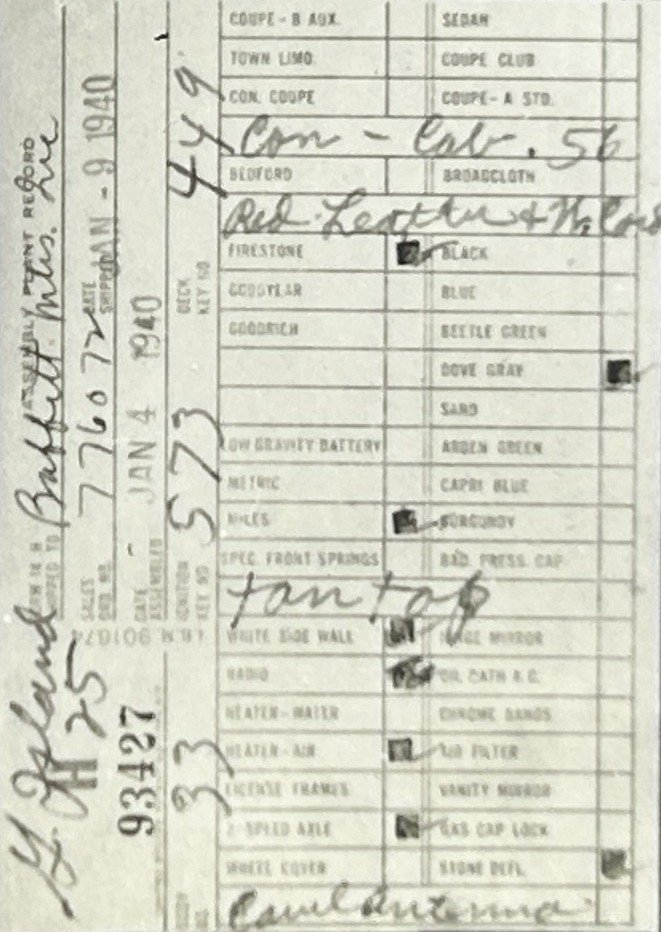 ASSEMBLY PLANT RECORD
SHIPPED TO
G. Island
Baffitt Mtrs. Inc
SALES ORD. NO. 776072 DATE SHIPPED JAN - 9 1940
H 25
93427
DATE ASSEMBLED JAN 4 1940
I.B.M. 901674
BODY NO. 33 IGNITION KEY NO 573 DECK KEY NO 449
COUPE - B AUX. SEDAN
TOWN LIMO. COUPE CLUB
CON. COUPE COUPE - A STD.
Con - Cab. 56
BEDFORD BROADCLOTH
Red Leather + W. Cord
FIRESTONE BLACK
GOODYEAR BLUE
GOODRICH BEETLE GREEN
DOVE GRAY
SAND
LOW GRAVITY BATTERY ARDEN GREEN
METRIC CAPRI BLUE
MILES BURGUNDY
SPEC. FRONT SPRINGS RAD. PRESS. CAP
tan top
WHITE SIDE WALL HINGE MIRROR
RADIO OIL BATH A.C.
HEATER - WATER CHROME BANDS
HEATER - AIR AIR FILTER
LICENSE FRAMES VANITY MIRROR
2-SPEED AXLE GAS CAP LOCK
WHEEL COVER STONE DEFL.
Cowl Antenna